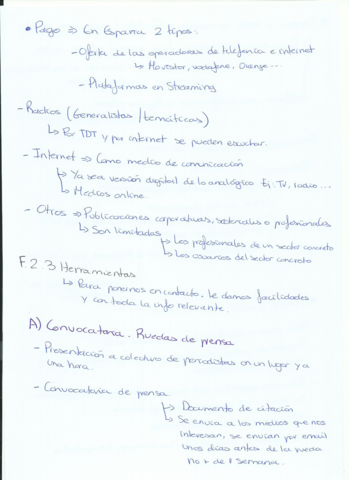 • Pago ⇒ En España 2 tipos:
- Oferta de las operadoras de telefonía e internet
↳ Movistar, vodafone, Orange...
- Plataformas en Streaming
- Radios (Generalistas / temáticas)
↳ Por TDT y por internet se pueden escuchar.
- Internet ⇒ Como medio de comunicación
↳ Ya sea versión digital de lo analógico Ej: TV, radio...
↳ Medios online.
- Otros ⇒ Publicaciones corporativas, sectoriales o profesionales
↳ Son limitados
↳ Los profesionales de un sector concreto
↳ Los usuarios del sector concreto
F.2.3 Herramientas
↳ Para ponernos en contacto. Le damos facilidades
y con toda la info relevante.
A) Convocatoria. Ruedas de prensa
- Presentación a colectivo de periodistas en un lugar y a
una hora.
- Convocatoria de prensa
↳ Documento de citación
↳ Se envía a los medios que nos
interesan, se envían por email
unos días antes de la rueda
no + de 1 semana.